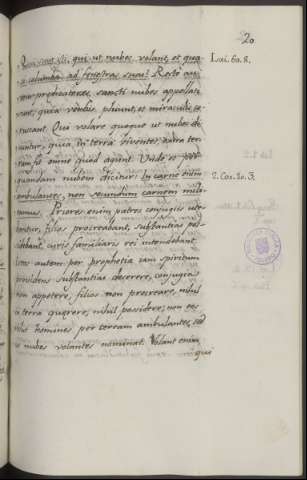 20
Qui sunt isti, qui ut nubes volant, et qua- Isai. 60. 8.
si columbæ ad fenestras suas? Recte au-
tem prædicatores, sancti nubes appellati
sunt, quia verbis pluunt, et miraculis co-
ruscant. Qui volare quoque ut nubes di-
cuntur, quia in terra viventes, extra ter-
ram fit omne quod agunt. Unde et per
quendam nubem dicitur: In carne enim 2. Cor. 10. 3.
ambulantes, non secundum carnem mili-
tamus. Priores enim patres conjugiis ute-
bantur, filios procreabant, substantias pos-
sidebant, curis familiaris rei intendebant.
autem per prophetia iam spiritum
providens substantias deserere, conjugia
non appetere, filios non procreare, nihil
in terra quærere, nihil possidere; non eos
homines per terram ambulantes, sed
nubes volantes nominat. Volant enim,
qui